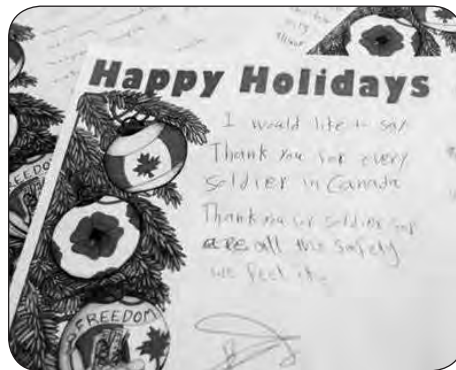 Happy Holidays
I would like to say
Thank you for every
soldier in Canada
Thank you for soldier for
are all the safety
we feel it.
FREEDOM
FREEDOM